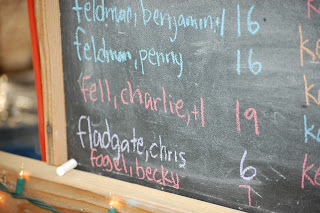 feldman, benjamin, / 16
feldman, penny 16
fell, charlie, +1 19
fladgate, chris 6
fogel, becky 7